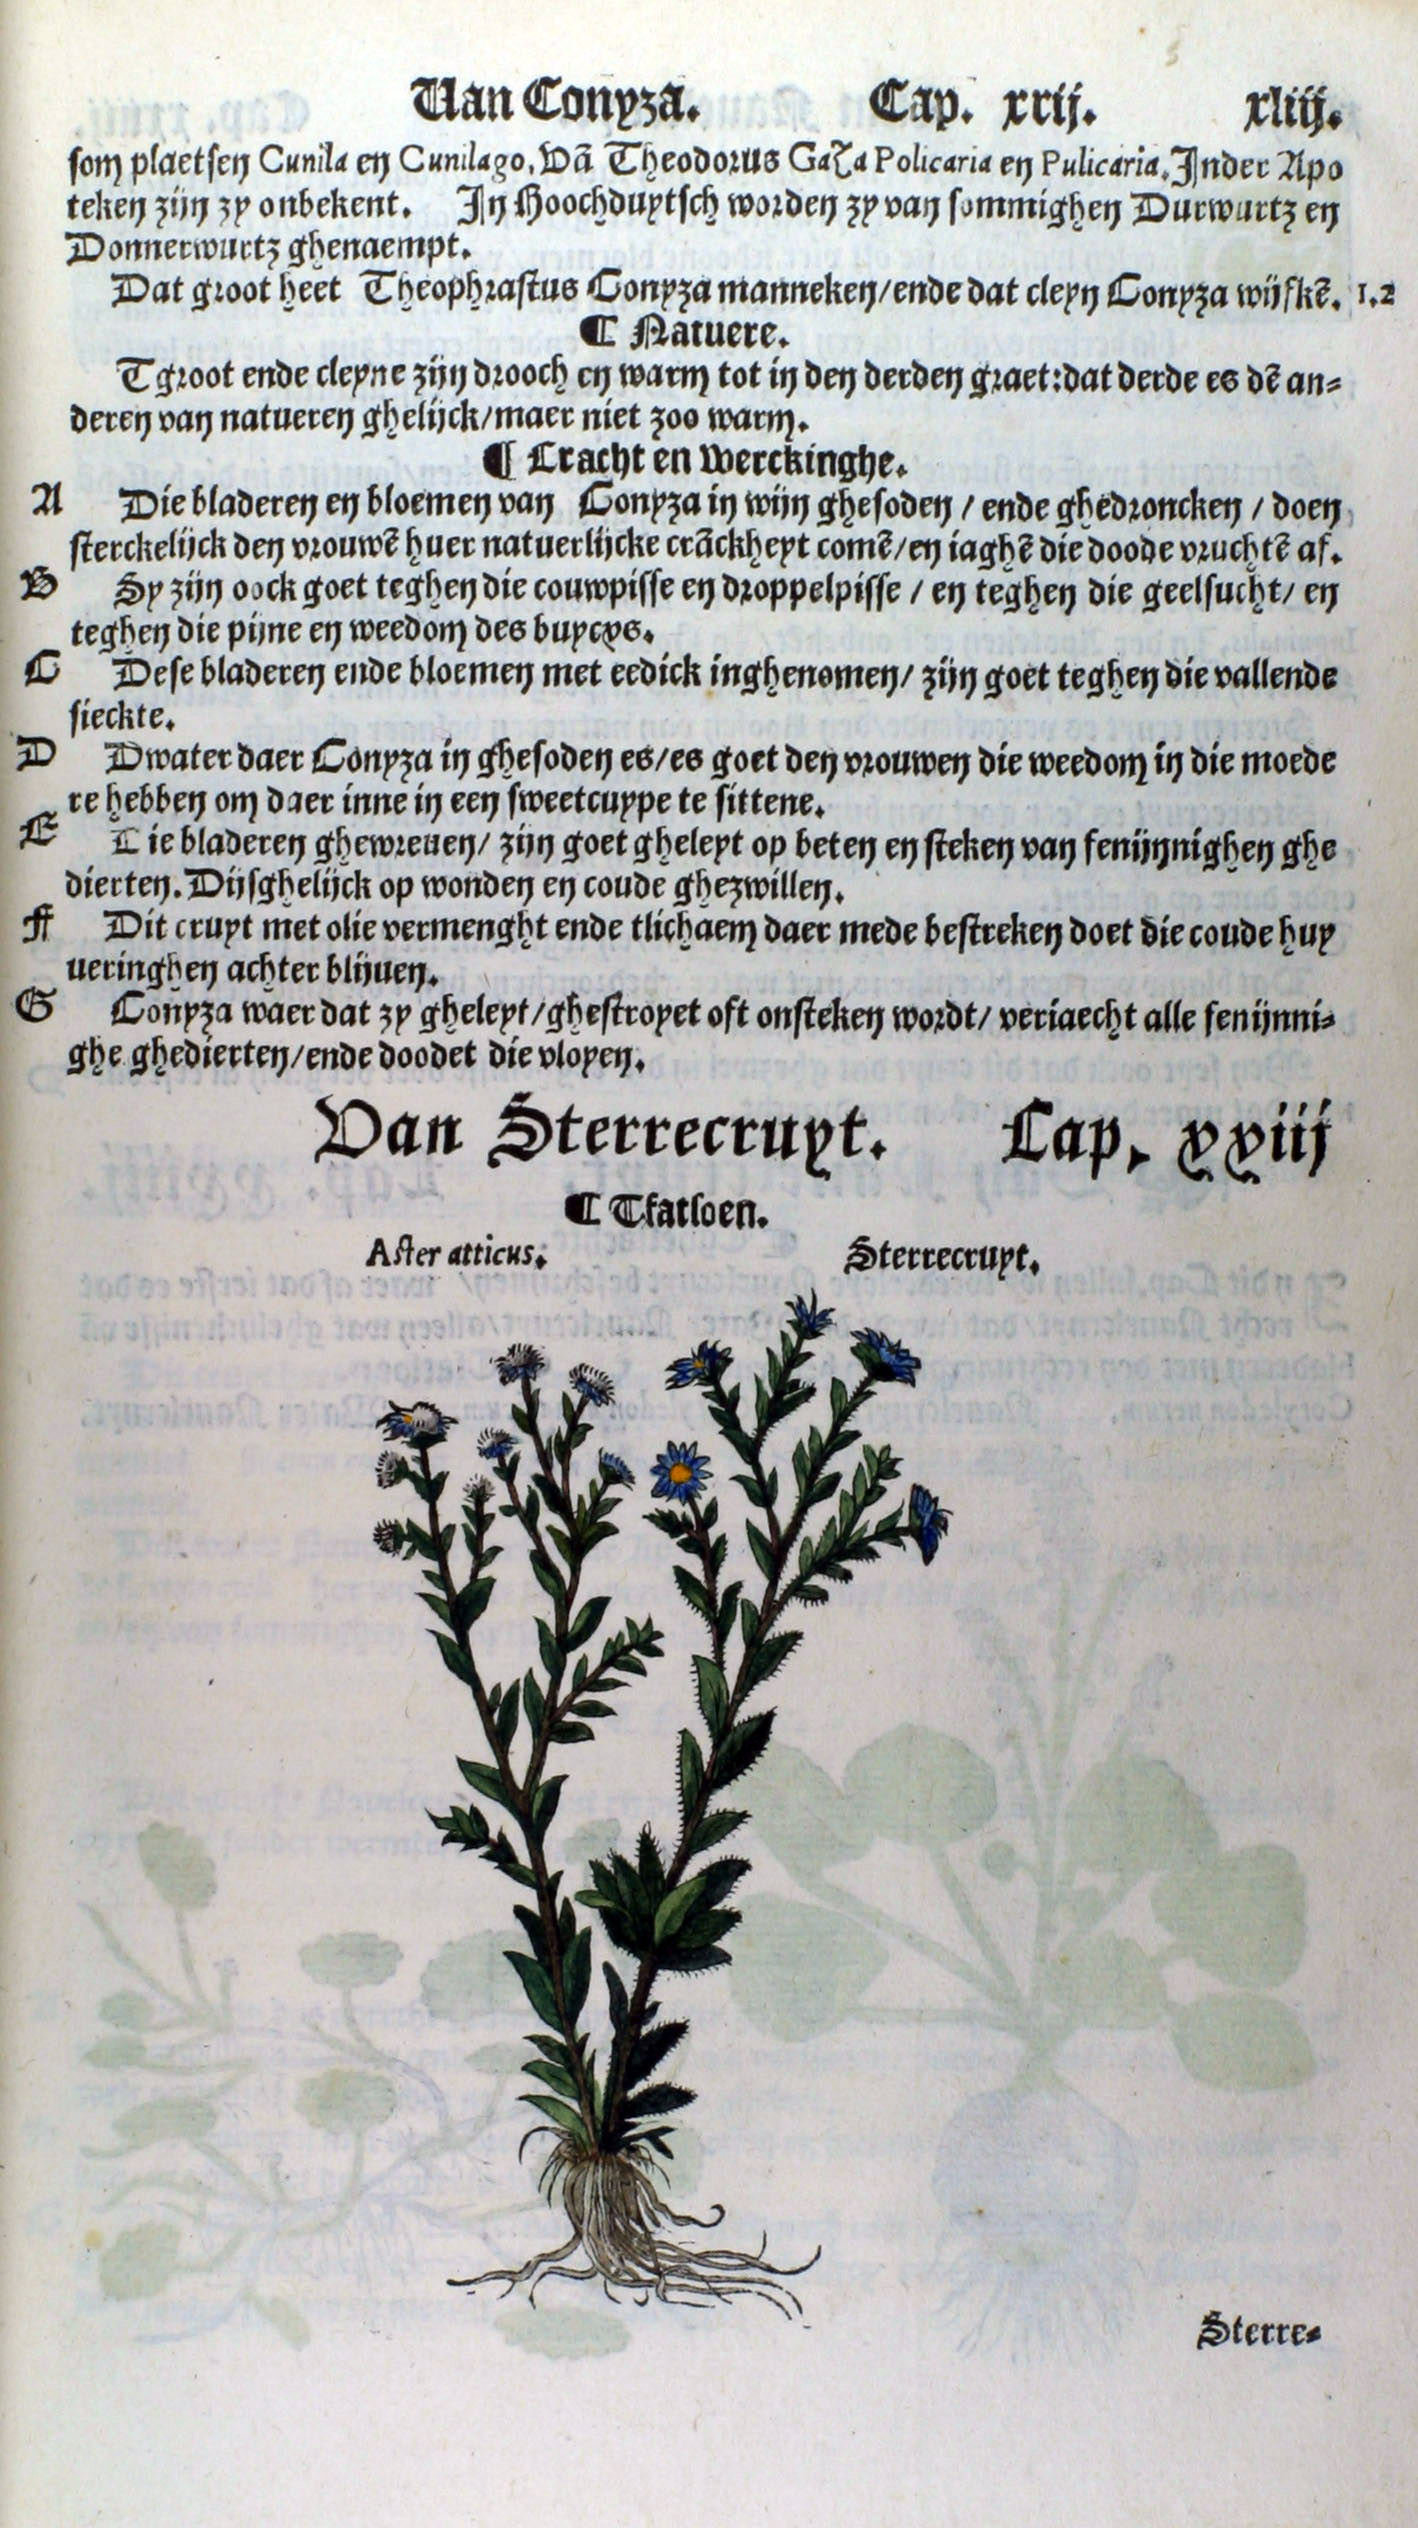 Van Conyza. Cap. xxij. xliij.
som plaetsen Cunila en Cunilago. Vā Theodorus Gaza Policaria en Pulicaria. Inder Apo
teken zijn zy onbekent. In Hoochduytsch worden zy van sommighen Durwurtz en
Donnerwurtz ghenaempt.
Dat groot heet Theophrastus Conyza manneken/ende dat cleyn Conyza wijfkē. 1.2
¶ Natuere.
Tgroot ende cleyne zijn drooch en warm tot in den derden graet:dat derde es dē an=
deren van natueren ghelijck/maer niet zoo warm.
¶ Cracht en Werckinghe.
A Die bladeren en bloemen van Conyza in wijn ghesoden / ende ghedroncken / doen
sterckelijck den vrouwē huer natuerlijcke crāckheyt comē/en iaghē die doode vruchtē af.
B Sy zijn oock goet teghen die couwpisse en droppelpisse / en teghen die geelsucht/ en
teghen die pijne en weedom des buycxs.
C Dese bladeren ende bloemen met eedick inghenomen/ zijn goet teghen die vallende
sieckte.
D Dwater daer Conyza in ghesoden es/es goet den vrouwen die weedom in die moede
re hebben om daer inne in een sweetcuype te sittene.
E Die bladeren ghewreuen/ zijn goet gheleyt op beten en steken van fenijnnighen ghe
dierten. Dijsghelijck op wonden en coude ghezwillen.
F Dit cruyt met olie vermenght ende tlichaem daer mede bestreken doet die coude huy
ueringhen achter blijuen.
G Conyza waer dat zy gheleyt/ghestroyet oft onsteken wordt/ veriaecht alle fenijnni=
ghe ghedierten/ende doodet die vloyen.
Van Sterrecruyt. Cap. xxiij
¶ Tfatsoen.
Aster atticus. Sterrecruyt.
Sterre=